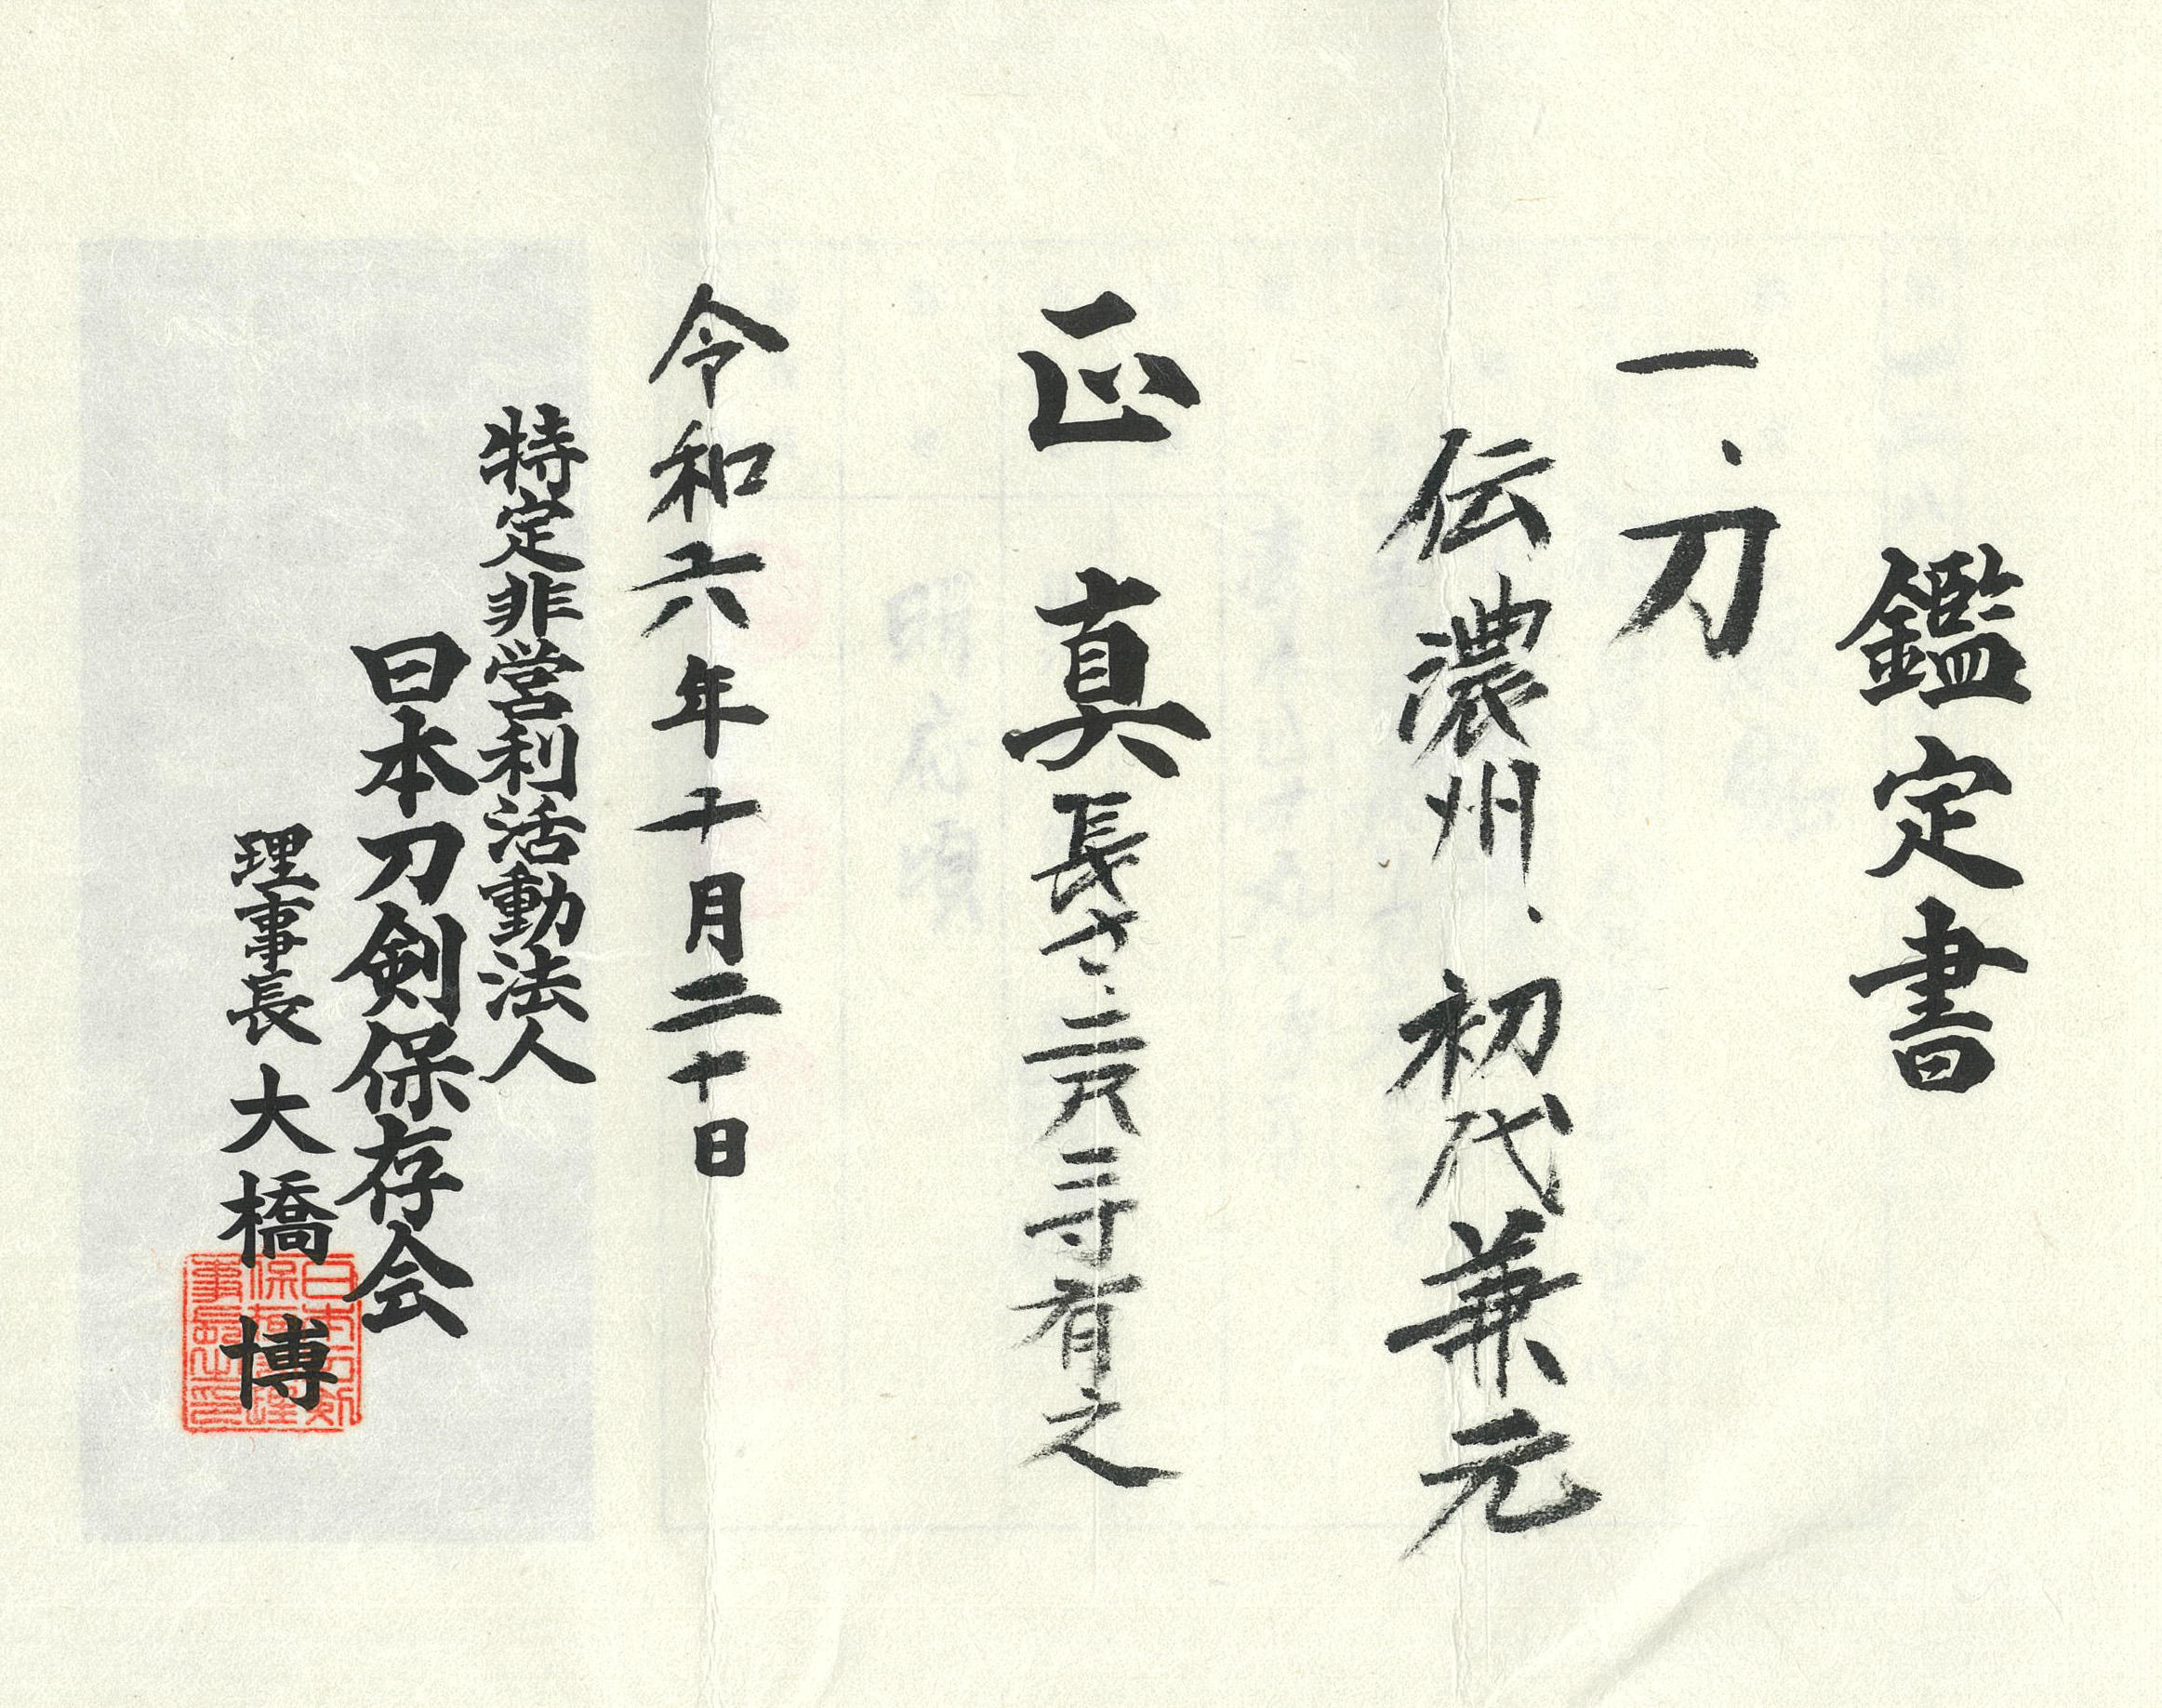 鑑定書
一、刀
伝濃州・初代兼元
正真 長さ・二尺三寸有之
令和六年十月二十日
特定非営利活動法人
日本刀剣保存会
理事長 大橋 博